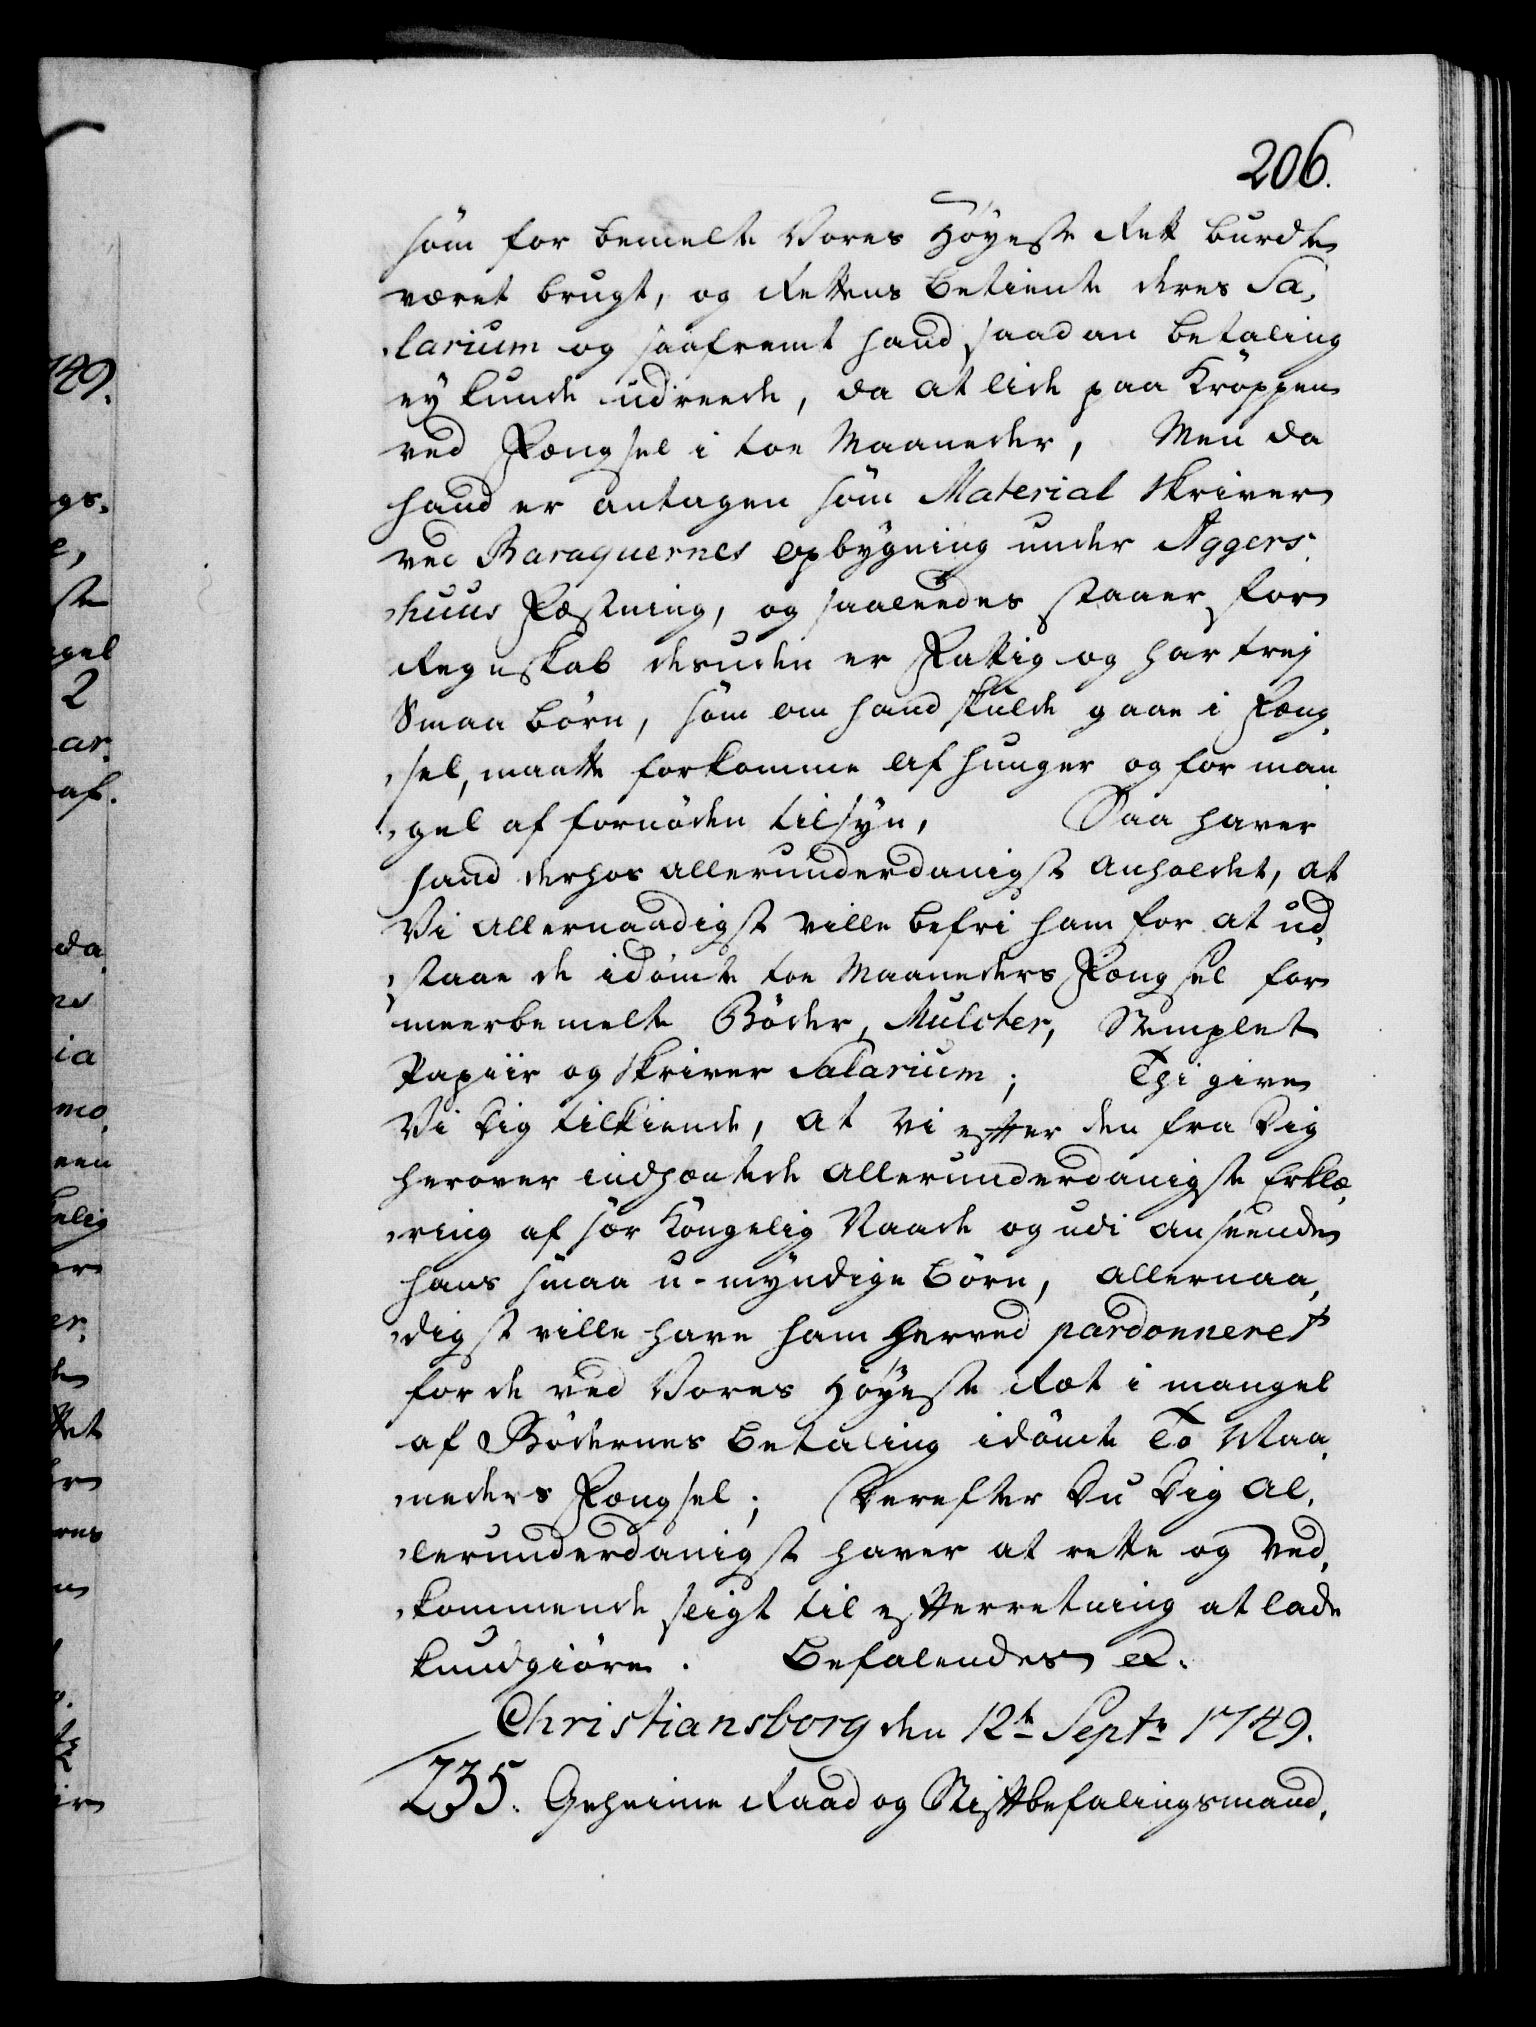 206.
som for bemelte Vores Höyeste Rett burde
været brugt, og Rettens Betiente deres Sa,
larium og saafremt hand saadan betaling
ey kunde udreede, da at lide paa Kroppen
ved Fængsel i toe Maaneder, Men da
hand er antagen som Material Skriver
ved Baraquernes opbygning under Aggers,
huus Fæstning, og saaleedes staaer for
Regnskab desuden er Fattig og har trej
Smaa börn, som om hand skulde gaae i Fæng,
sel, maatte forkomme af hunger og for man
gel af fornöden tilsyn, Saa haver
hand derhos allerunderdanigst anholdet, at
Vi allernaadigst ville befri ham for at ud,
staae de idömte toe Maaneders Fængsel for
meerbemelte Böder, Mulcter, Stemplet
Papiir og Skriver Salarium; Thi give
Vi Dig tilkiende, at Vi efter den fra Dig
herover indhæntede allerunderdanigste Erklæ,
ring af sær Kongelig Naade og udi anseende
hans smaa u-myndige börn, allernaa,
digst ville have ham herved pardonneret
for de ved Vores Höyeste Ræt i mangel
af Bödernes betaling idömte To Maa,
neders Fængsel; Derefter Du Dig al,
lerunderdanigst haver at rette og ved,
kommende sligt til efterretning at lade
kundgiöre. Befalendes &.
Christiansborg den 12te Septr 1749.
235. Geheime Raad og Stiftbefalingsmand,
149.
ste
2
ar.
af.
da,
ia
mo,
een
elig
er.